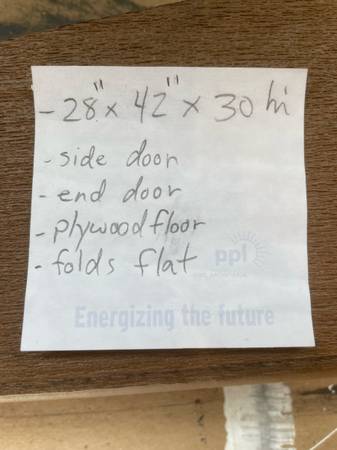 - 28" x 42" x 30 hi
- side door
- end door
- plywood floor
- folds flat
ppl
Energizing the future